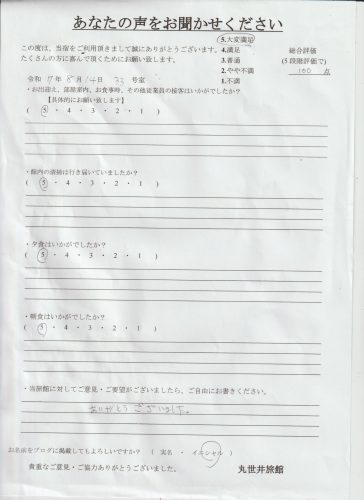 あなたの声をお聞かせください
この度は、当宿をご利用頂きまして誠にありがとうございます。
たくさんの方に喜んで頂くためにお願い致します。
5.大変満足
4.満足
3.普通
2.やや不満
1.不満
総合評価
(5段階評価で)
100 点
令和 7年 8月 14日 33号室
・お出迎え、部屋案内、お食事時、その他従業員の接客はいかがでしたか?
【具体的にお願い致します】
( 5 ・ 4 ・ 3 ・ 2 ・ 1 )
・館内の清掃は行き届いていましたか?
( 5 ・ 4 ・ 3 ・ 2 ・ 1 )
・夕食はいかがでしたか?
( 5 ・ 4 ・ 3 ・ 2 ・ 1 )
・朝食はいかがでしたか?
( 5 ・ 4 ・ 3 ・ 2 ・ 1 )
・当旅館に対してご意見・ご要望がございましたら、ご自由にお書きください。
ありがとうございました。
お名前をブログに掲載してもよろしいですか? ( 実名 ・ イニシャル )
貴重なご意見・ご協力ありがとうございました。
丸世井旅館